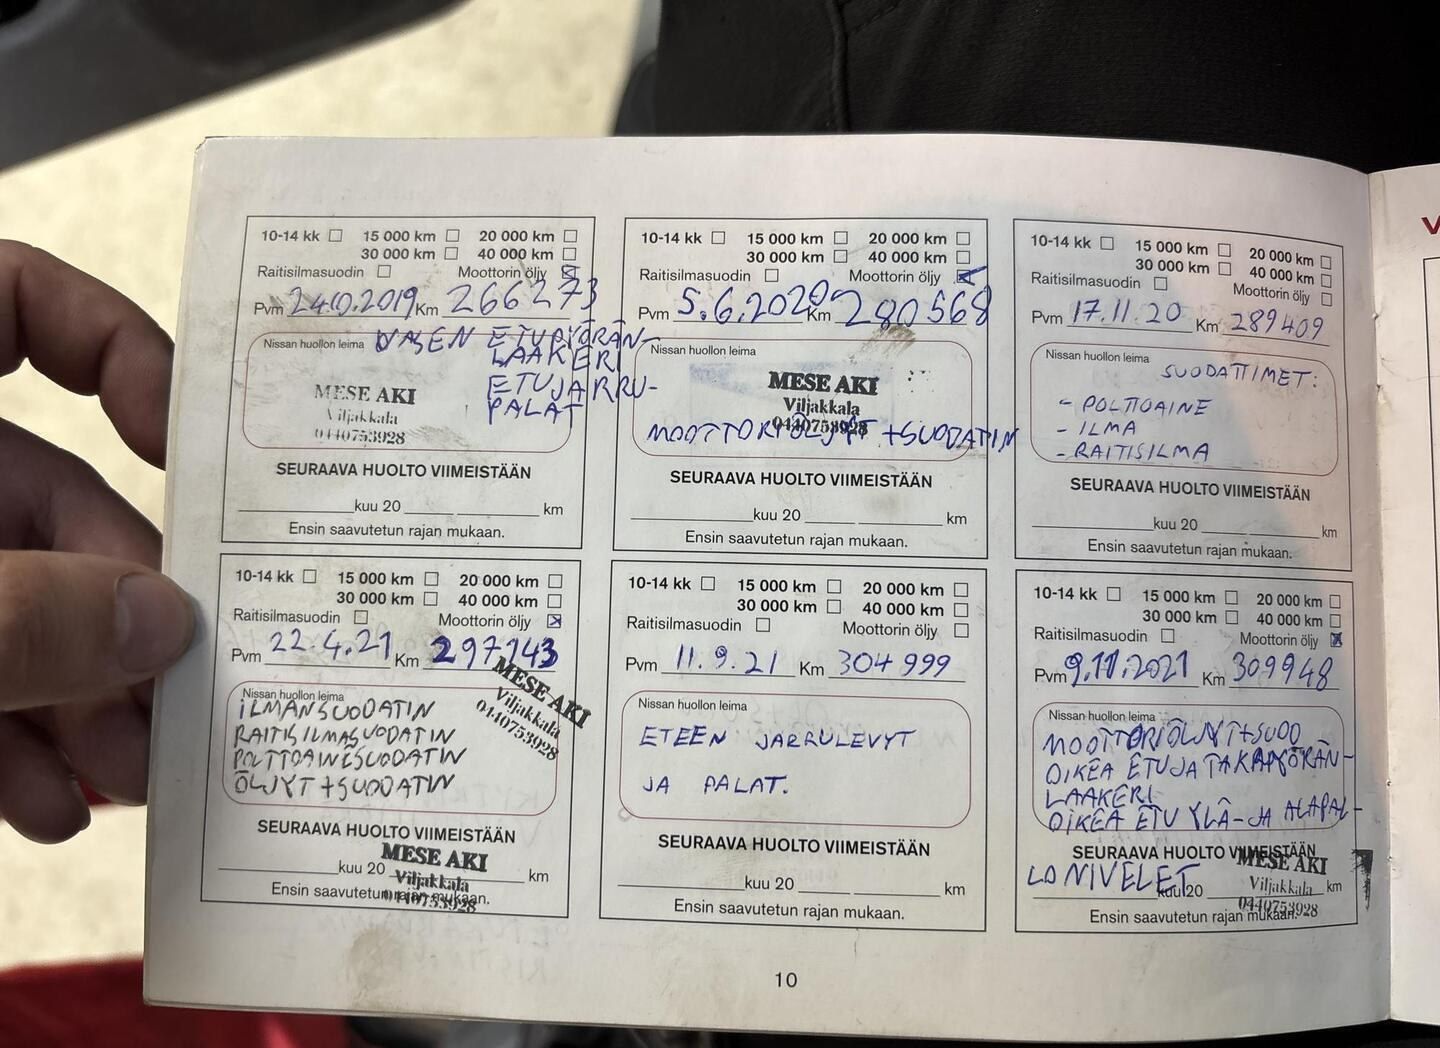 10-14 kk 15 000 km 20 000 km
30 000 km 40 000 km
Raitisilmasuodin Moottorin öljy
Pvm 24.10.2019 Km 266273
Nissan huollon leima VASEN ETUPYÖRÄN-
LAAKERI
ETUJARRU-
PALAT
MESE AKI
Viljakkala
0440753928
SEURAAVA HUOLTO VIIMEISTÄÄN
kuu 20 km
Ensin saavutetun rajan mukaan.
10-14 kk 15 000 km 20 000 km
30 000 km 40 000 km
Raitisilmasuodin Moottorin öljy
Pvm 5.6.2020 Km 280568
Nissan huollon leima
MESE AKI
Viljakkala
0440753928
MOOTTORIÖLJYT +SUODATIN
SEURAAVA HUOLTO VIIMEISTÄÄN
kuu 20 km
Ensin saavutetun rajan mukaan.
10-14 kk 15 000 km 20 000 km
30 000 km 40 000 km
Raitisilmasuodin Moottorin öljy
Pvm 17.11.20 Km 289409
Nissan huollon leima
SUODATTIMET:
- POLTTOAINE
- ILMA
- RAITISILMA
SEURAAVA HUOLTO VIIMEISTÄÄN
kuu 20 km
Ensin saavutetun rajan mukaan.
10-14 kk 15 000 km 20 000 km
30 000 km 40 000 km
Raitisilmasuodin Moottorin öljy
Pvm 22.4.21 Km 297143
Nissan huollon leima
MESE AKI
Viljakkala
0440753928
ILMANSUODATIN
RAITISILMASUODATIN
POLTTOAINESUODATIN
ÖLJYT +SUODATIN
SEURAAVA HUOLTO VIIMEISTÄÄN
MESE AKI
kuu 20 Viljakkala km
Ensin saavutetun rajan mukaan.
0440753928
10-14 kk 15 000 km 20 000 km
30 000 km 40 000 km
Raitisilmasuodin Moottorin öljy
Pvm 11.9.21 Km 304999
Nissan huollon leima
ETEEN JARRULEVYT
JA PALAT.
SEURAAVA HUOLTO VIIMEISTÄÄN
kuu 20 km
Ensin saavutetun rajan mukaan.
10-14 kk 15 000 km 20 000 km
30 000 km 40 000 km
Raitisilmasuodin Moottorin öljy
Pvm 9.11.2021 Km 309948
Nissan huollon leima
MOOTTORIÖLJYT+SUOD
OIKEA ETUJATAKAPYÖRÄN-
LAAKERI
OIKEA ETU YLÄ-JA ALAPAL-
SEURAAVA HUOLTO VIIMEISTÄÄN
MESE AKI
LONIVELET kuu 20 Viljakkala km
Ensin saavutetun rajan mukaan.
0440753928
10